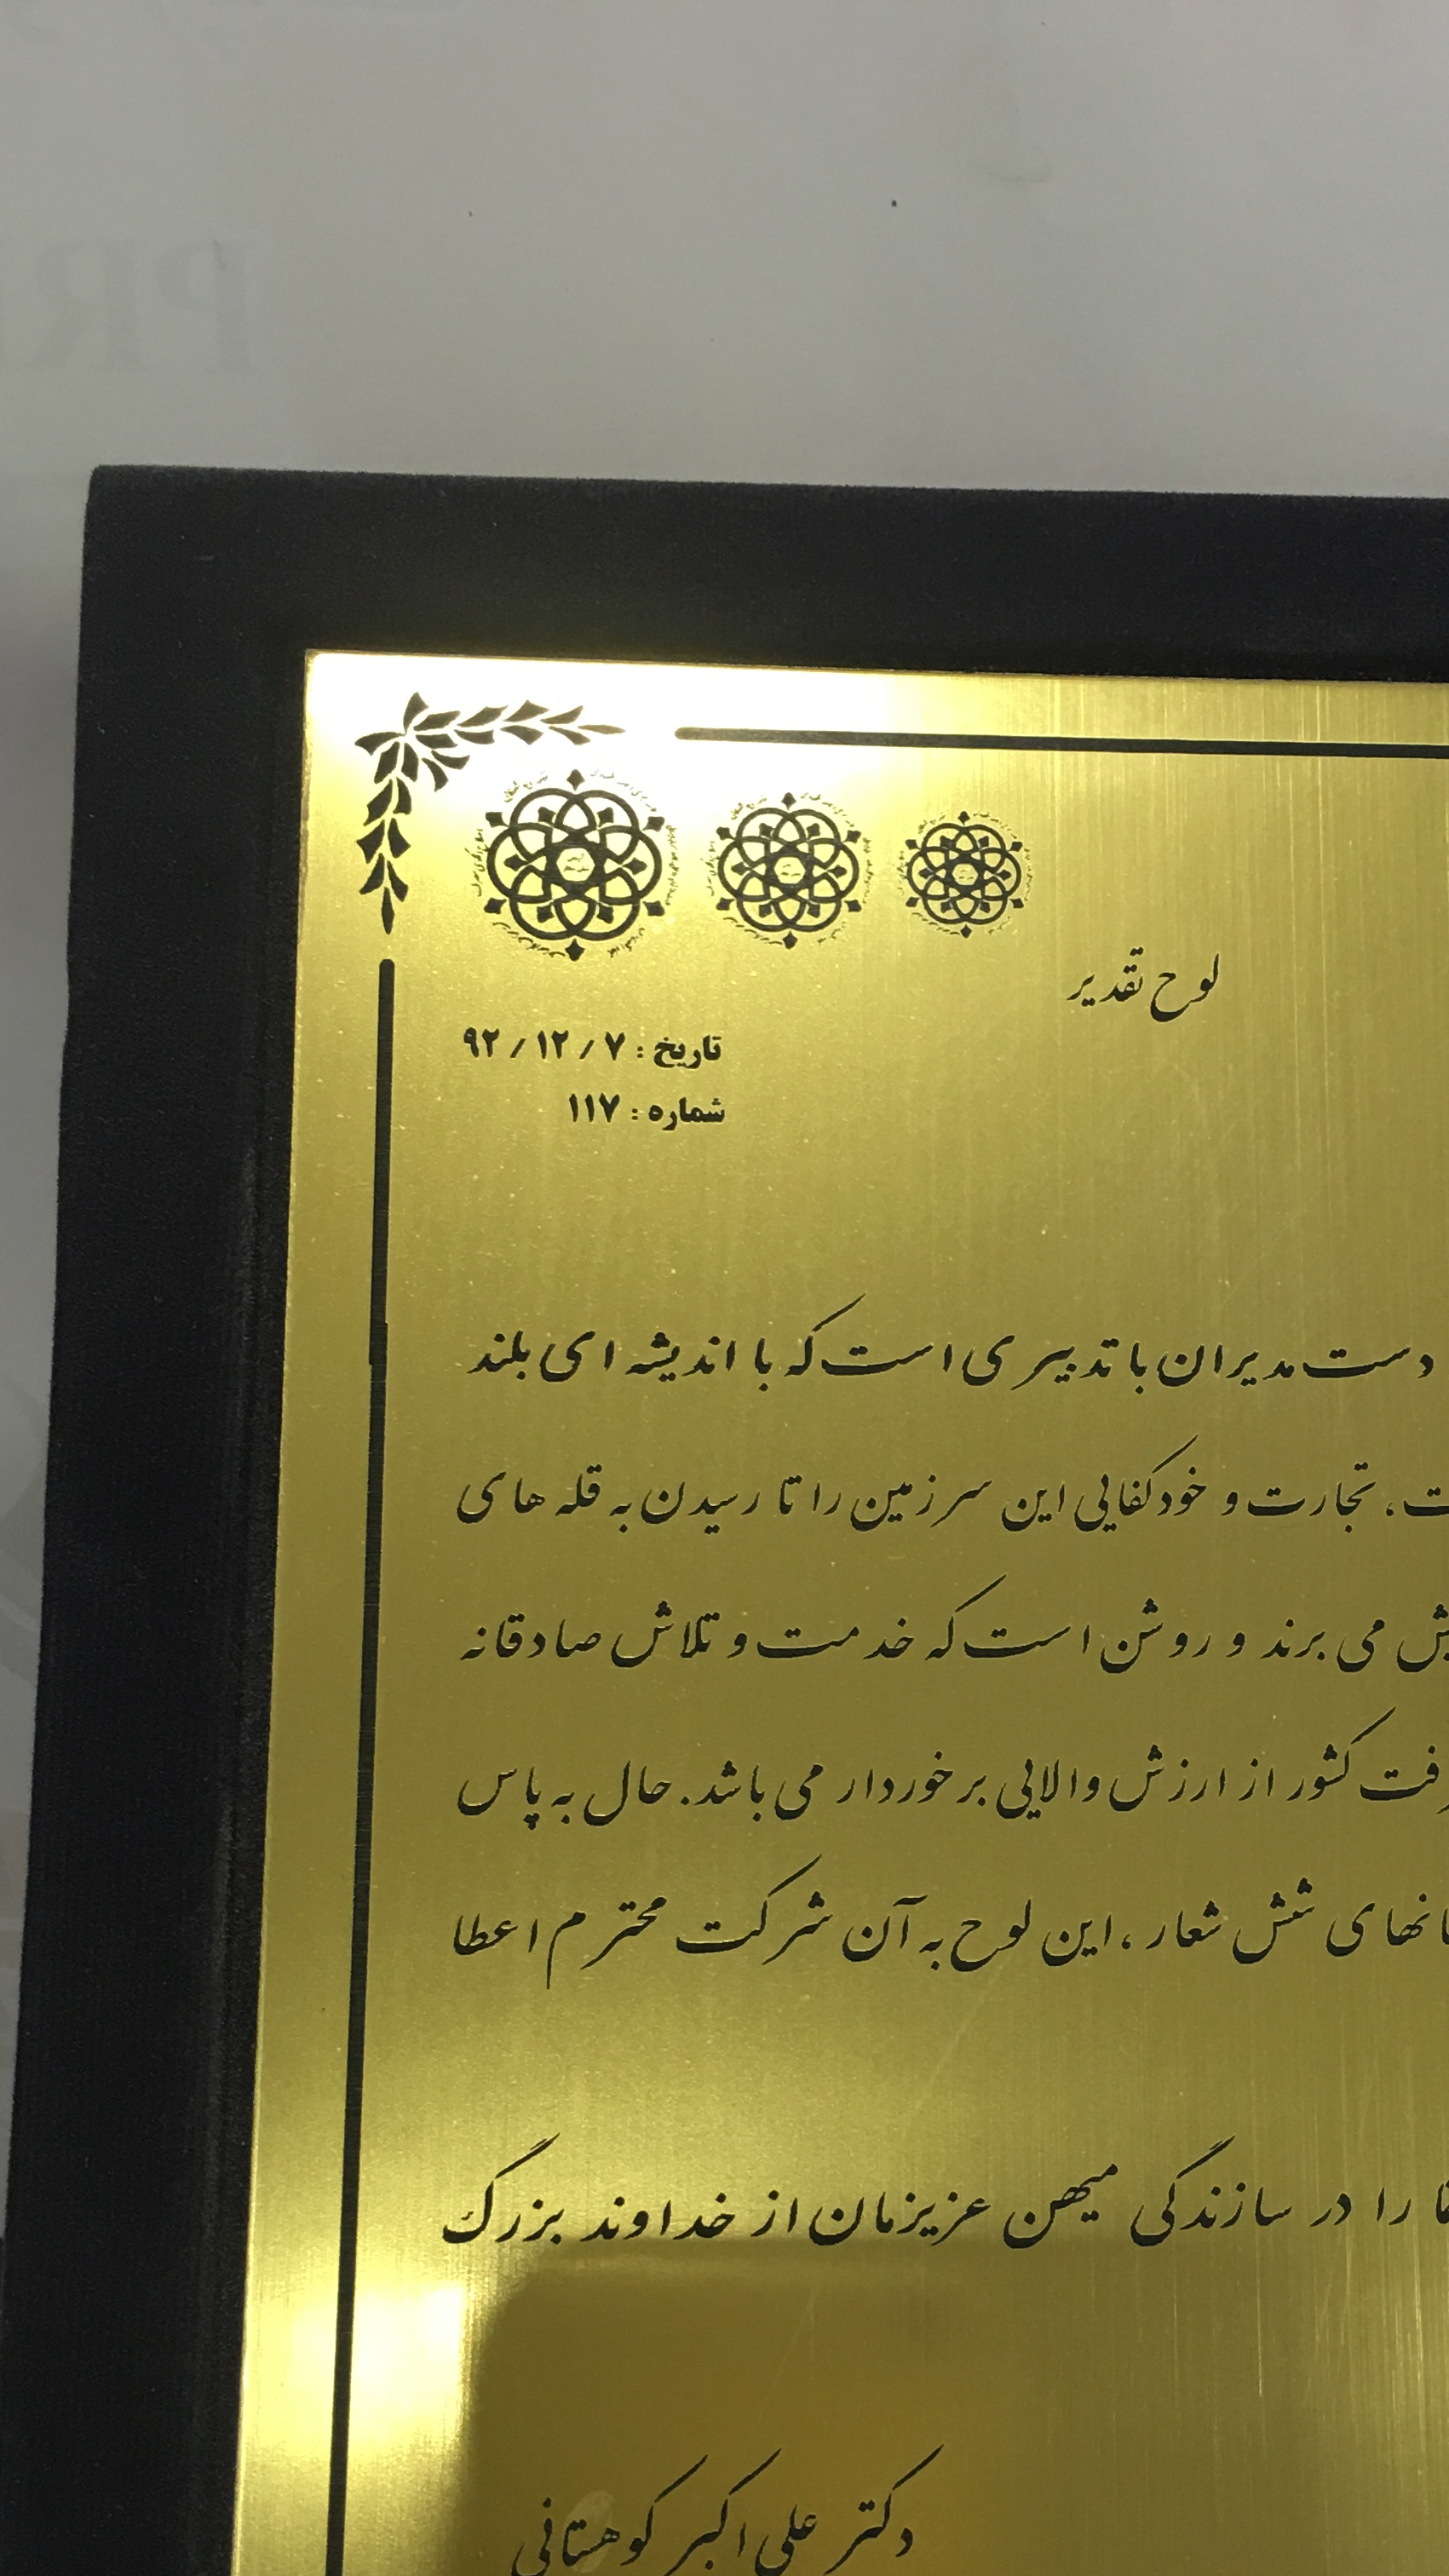 PR
لوح تقدیر
تاریخ : ۹۲/۱۲/۷
شماره : ۱۱۷
دست مدیران با تدبیری است که با اندیشه ای بلند
ت، تجارت و خودکفایی این سرزمین را تا رسیدن به قله های
ش می برند و روشن است که خدمت و تلاش صادقانه
فت کشور از ارزش والایی برخوردار می باشد. حال به پاس
انهای شش شعار، این لوح به آن شرکت محترم اعطا
را در سازندگی میهن عزیزمان از خداوند بزرگ
دکتر علی اکبر کوهستانی